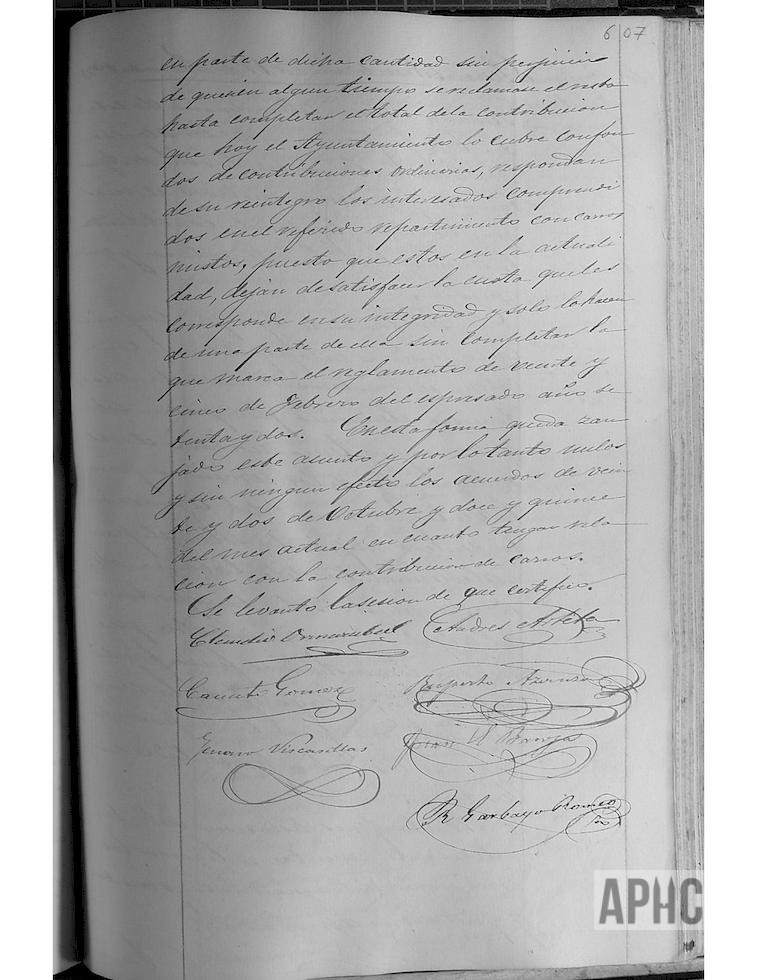 6 07
en parte de dicha cantidad sin perjuicio
de que si en algun tiempo se reclamase el resto
hasta completar el total de la contribucion
que hoy el Ayuntamiento lo cubre con fon
dos de contribuciones ordinarias, respondan
de su reintegro los interesados comprendi
dos en el referido repartimiento con carros
mistos, puesto que estos en la actuali
dad, dejan de satisfacer la cuota que les
corresponde en su integridad y solo lo hacen
de una parte de ella sin completar la
que marca el reglamento de veinte y
cinco de Febrero del espresado año se
tenta y dos. En esta forma queda zan
jado este asunto y por lo tanto nulos
y sin ningun efecto los acuerdos de vein
te y dos de Octubre y doce y quince
del mes actual en cuanto tengan rela
cion con la contribucion de carros.
Se levantó la sesion de que certifico.
Claudio Andres Arteta
Gomez Ruperto
Genaro Viscasillas Juan
R Garbayo
APHC